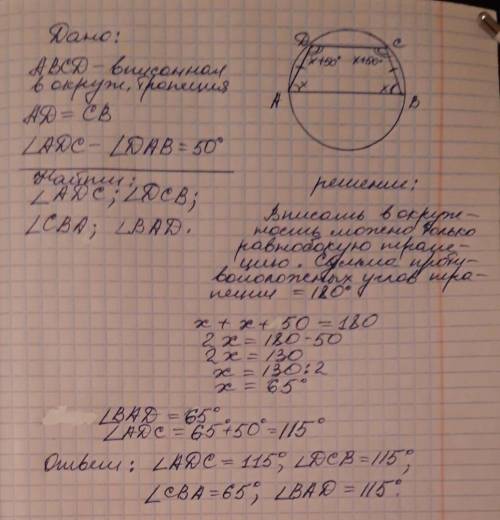 Дано:
ABCD - вписанная
в окруж. трапеция
AD = CB
∠ADC - ∠DAB = 50°
Найти:
∠ADC; ∠DCB;
∠CBA; ∠BAD.
D C
x+50° x+50°
A x x B
решение:
Вписать в окруж-
ность можно только
равнобокую трапе-
цию. Сумма проти-
воположных углов тра-
пеции = 180°
x + x + 50 = 180
2x = 180-50
2x = 130
x = 130:2
x = 65°
∠BAD = 65°
∠ADC = 65+50°=115°
Ответ: ∠ADC = 115°, ∠DCB = 115°,
∠CBA = 65°, ∠BAD = 115°.